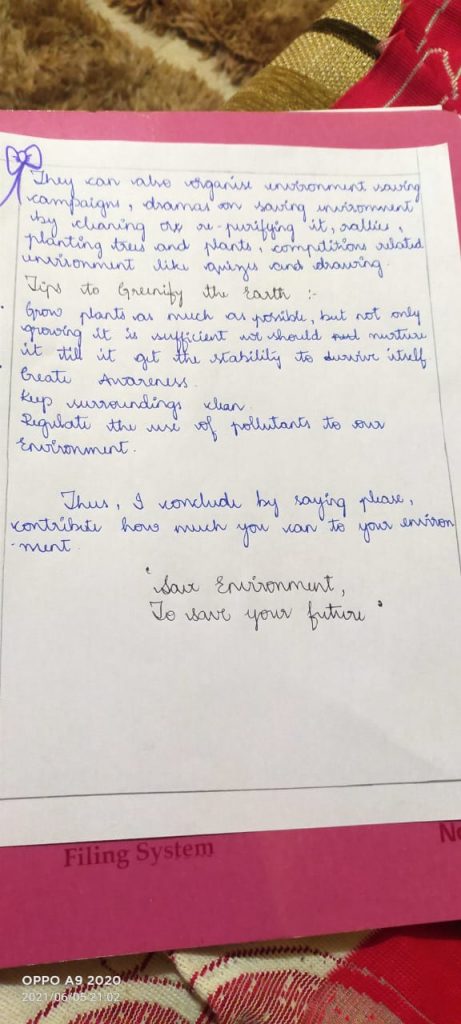 They can also organise environment saving
campaigns, dramas on saving environment
by cleaning or re-purifying it, rallies,
planting trees and plants, compititions related
environment like quizes and drawing.
Tips to Greenify the Earth :-
Grow plants as much as possible, but not only
growing it is sufficient we should nurture
it till it get the stability to survive itself
Create Awareness.
Keep surroundings clean.
Regulate the use of pollutants to our
Environment.
Thus, I conclude by saying please,
contribute how much you can to your environ
-ment
'Save Environment,
To save your future'
Filing System
OPPO A9 2020
2021/06/05 21:02